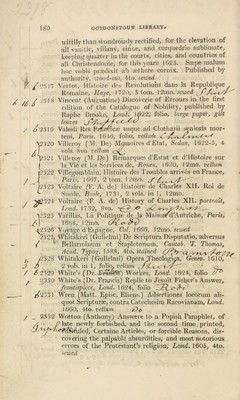 108 GORDONSTOUN LIBRARY.
wittily than wondrously rectified, for the eleration of
all vanitie, villany, sinne, and surquedrie sublimate,
keeping quarter in the courts, cities, and countries of
all Christendome, for this yeare 1623. Sæpe malum
hoc vobis prædixit ab æthere cornix. Published by
authority, uncut-out, 4to. sewed
2317 Vertot, Histoire des Revolutions dans la Republique
Romaine, Haye, 1720, 3 tom. 12mo. sewed
2318 Vincent (Augustine) Discoverie of Errours in the first
edition of the Catalogue of Nobility, published by
Raphe Brooke, Lond. 1622, folio, large paper, gilt
leaves
2319 Valesii Res Francicæ usque ad Clotharii senioris mor-
tem, Paris. 1646, folio, vellum
2320 Villeroy (M. De) Memoires d'Estat, Sedan, 1622-3, 4
vols. 8vo. vellum
2321 Villeroy (M. De) Remarques d'Estat et d'Histoire sur
la Vie et les Services de, Rouen, 1620, 12mo. vellum
2322 Villegomblain, Histoire des Troubles arrivés en France,
Paris, 1667, 2 tom. 12mo.
2323 Voltaire (F. A. de) Histoire de Charles XII. Roi de
Suede, Basle, 1731, 2 vols. in 1, 12mo.
2324 Voltaire (F. A. de) History of Charles XII. portrait,
Lond. 1732, 8vo.
2325 Varillas, La Politique de la Maison d'Autriche, Paris,
1658, 12mo.
2326 Voyage d'Espagne, Col. 1666, 12mo. sewed
2327 Whitakeri (Gulielmi) De Scriptura Disputatio, adversus
Bellarminum et Stapletonum, Cantab. T. Thomas,
Acad. Typog. 1588, 4to. stained
2328 Whitakeri (Gulielmi) Opera Theologica, Genev. 1610,
2 vols. in 1, folio, vellum
2329 White's (Dr. Francis) Workes, Lond. 1624, folio
2330 White's (Dr. Francis) Replie to Jesuit Fisher's Answer,
frontispiece, Lond. 1624, folio
2331 Wren (Matt. Epise. Eliens.) Adsertiones locorum ali-
quot Scripturæ, contra Catechesim Racovianam, Lond.
1660, 4to. vellum
2332 Wotton (Anthony) Answere to a Popish Pamphlet, of
late newly forbished, and the second time printed,
entituled, Certaine Articles, or forcible Reasons, dis-
covering the palpable absurdities, and most notorious
errors of the Protestant's religion, Lond. 1605, 4to.
sewed